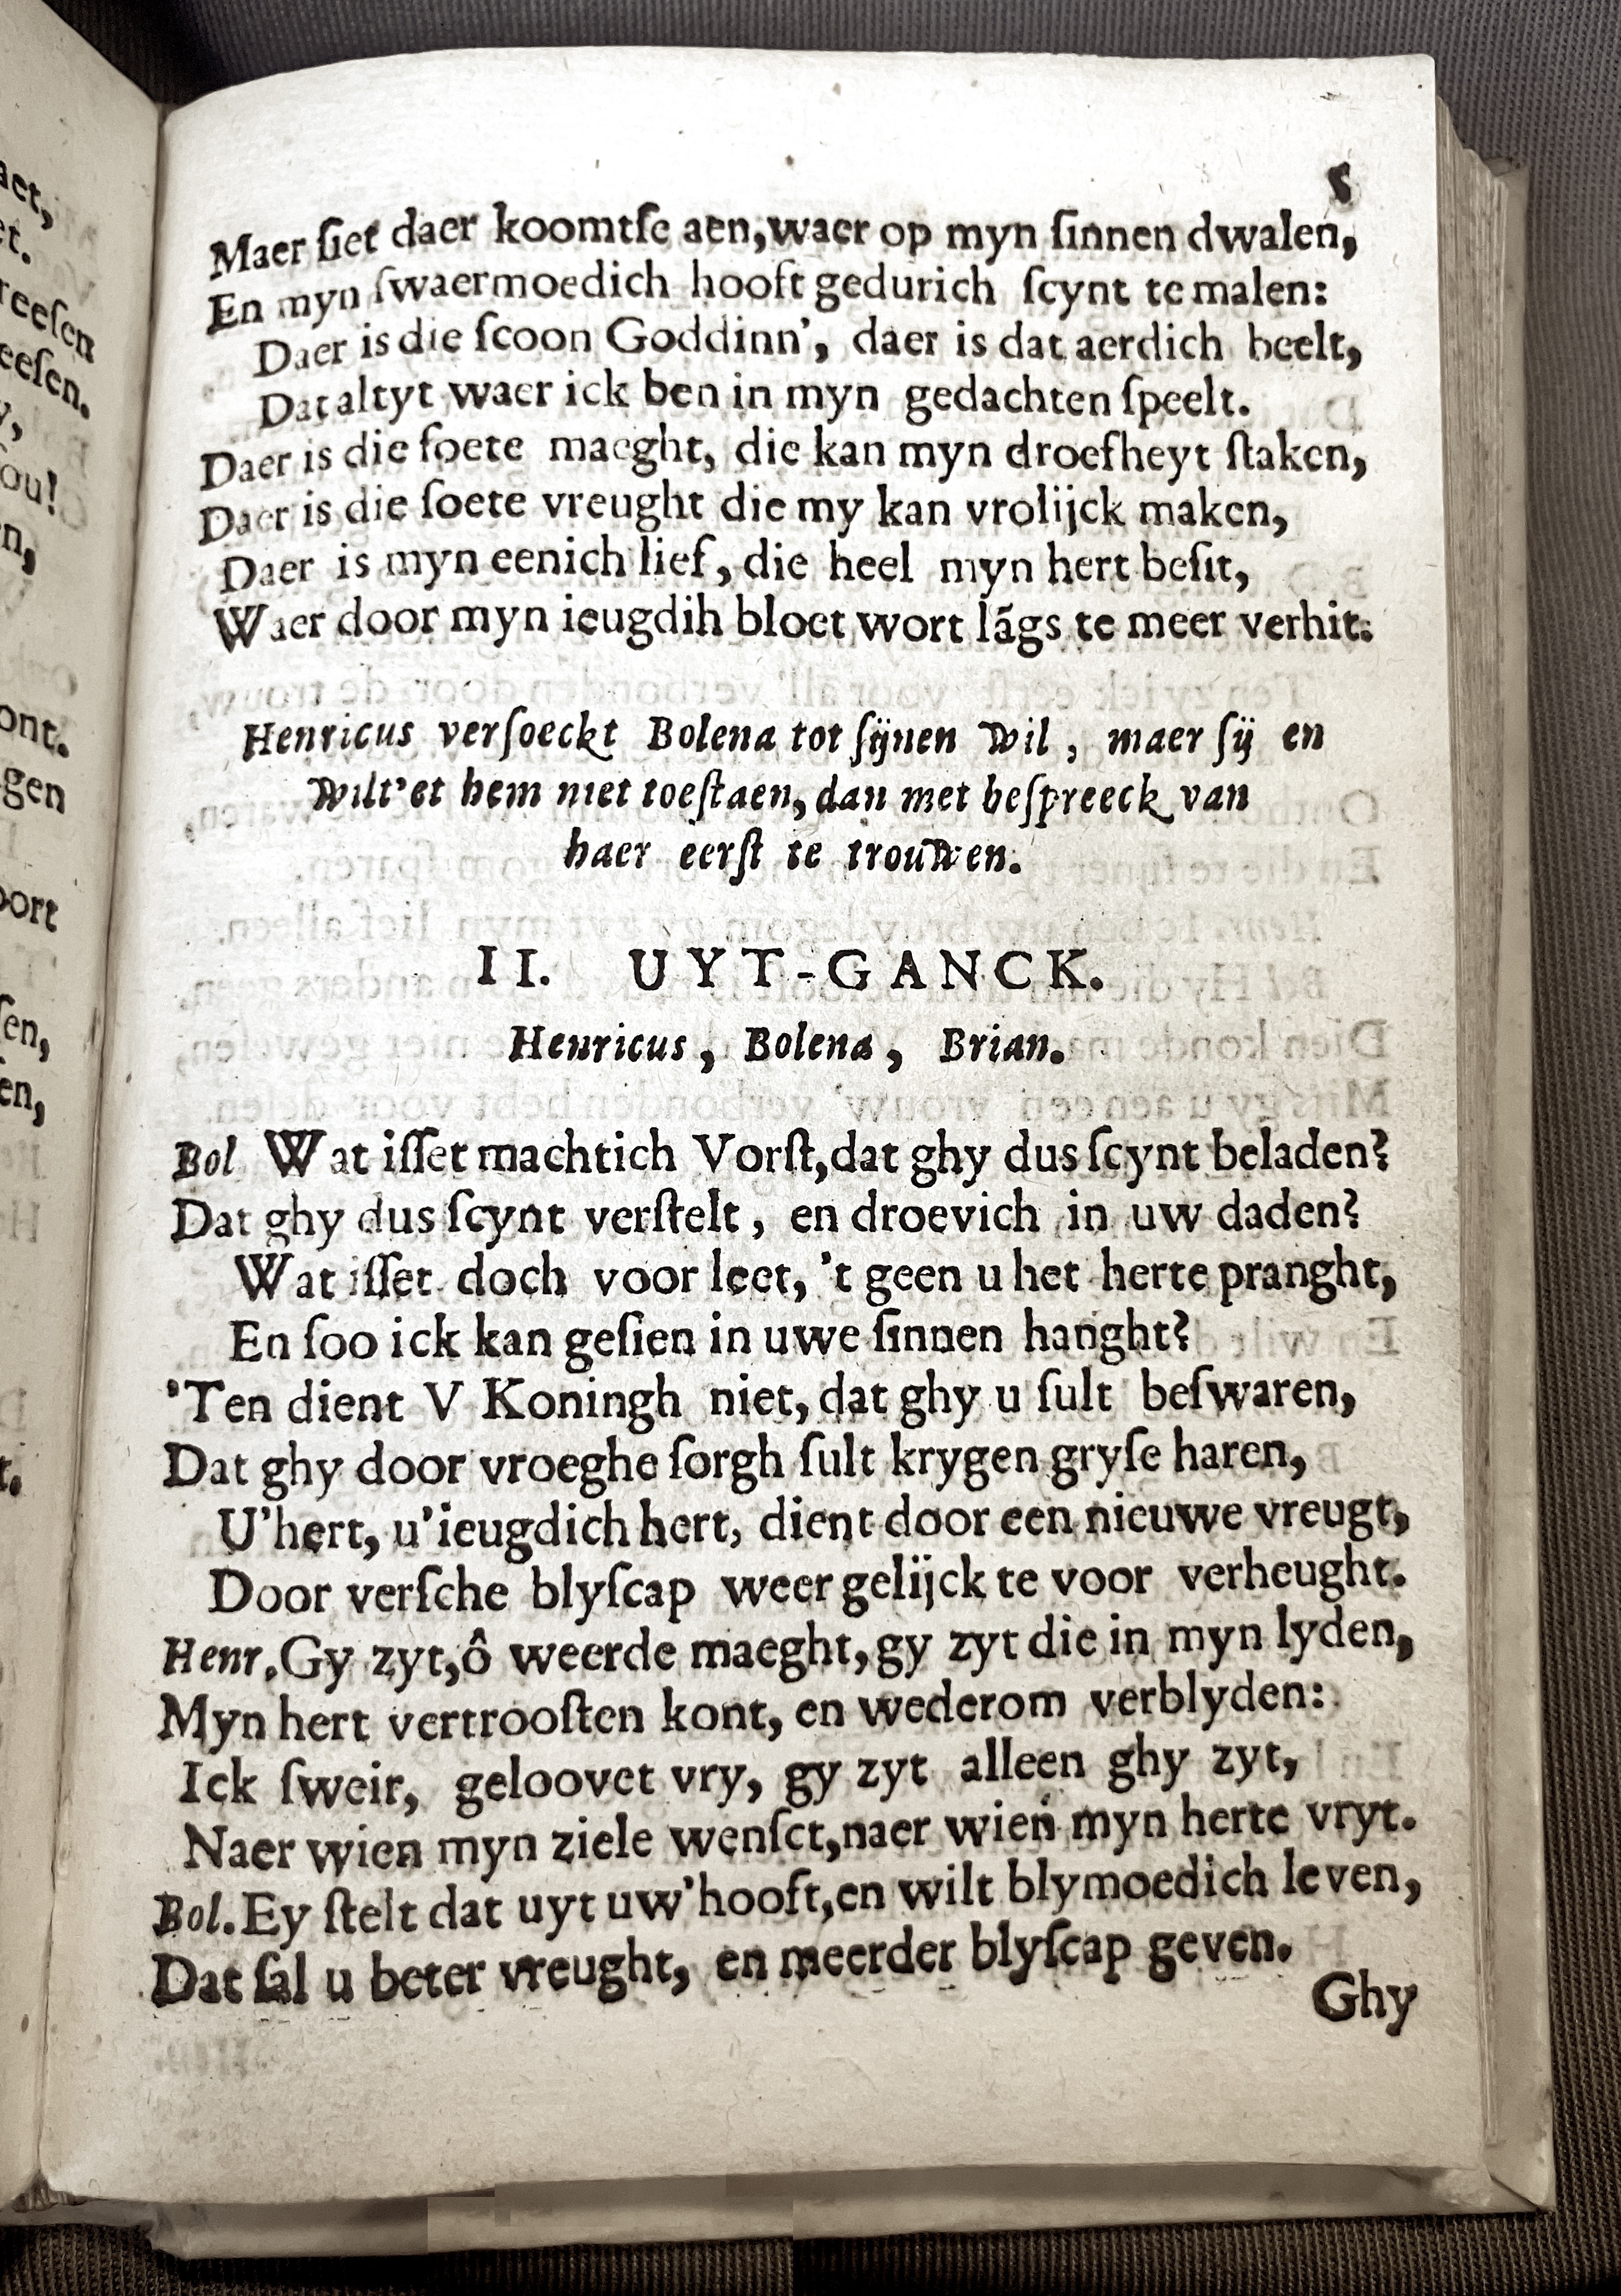 5
Maer ſiet daer koomtſe aen, waer op myn ſinnen dwalen,
En myn ſwaermoedich hooft gedurich ſcynt te malen:
Daer is die ſcoon Goddinn', daer is dat aerdich beelt,
Dat altyt waer ick ben in myn gedachten ſpeelt.
Daer is die ſoete maeght, die kan myn droefheyt ſtaken,
Daer is die ſoete vreught die my kan vrolijck maken,
Daer is myn eenich lief, die heel myn hert beſit,
Waer door myn ieugdih bloet wort lãgs te meer verhit.
Henricus verſoeckt Bolena tot ſijnen wil, maer ſij en
wilt'et hem niet toeſtaen, dan met beſpreeck van
haer eerſt te trouwen.
II. UYT-GANCK.
Henricus, Bolena, Brian.
Bol Wat iſſet machtich Vorſt, dat ghy dus ſcynt beladen?
Dat ghy dus ſcynt verſtelt, en droevich in uw daden?
Wat iſſet doch voor leet, 't geen u het herte pranght,
En ſoo ick kan geſien in uwe ſinnen hanght?
'Ten dient V Koningh niet, dat ghy u ſult beſwaren,
Dat ghy door vroeghe ſorgh ſult krygen gryſe haren,
U'hert, u'ieugdich hert, dient door een nieuwe vreugt,
Door verſche blyſcap weer gelijck te voor verheught.
Henr. Gy zyt, ô weerde maeght, gy zyt die in myn lyden,
Myn hert vertrooſten kont, en wederom verblyden:
Ick ſweir, geloovet vry, gy zyt alleen ghy zyt,
Naer wien myn ziele wenſct, naer wien myn herte vryt.
Bol. Ey ſtelt dat uyt uw'hooft, en wilt blymoedich leven,
Dat ſal u beter vreught, en meerder blyſcap geven.
Ghy